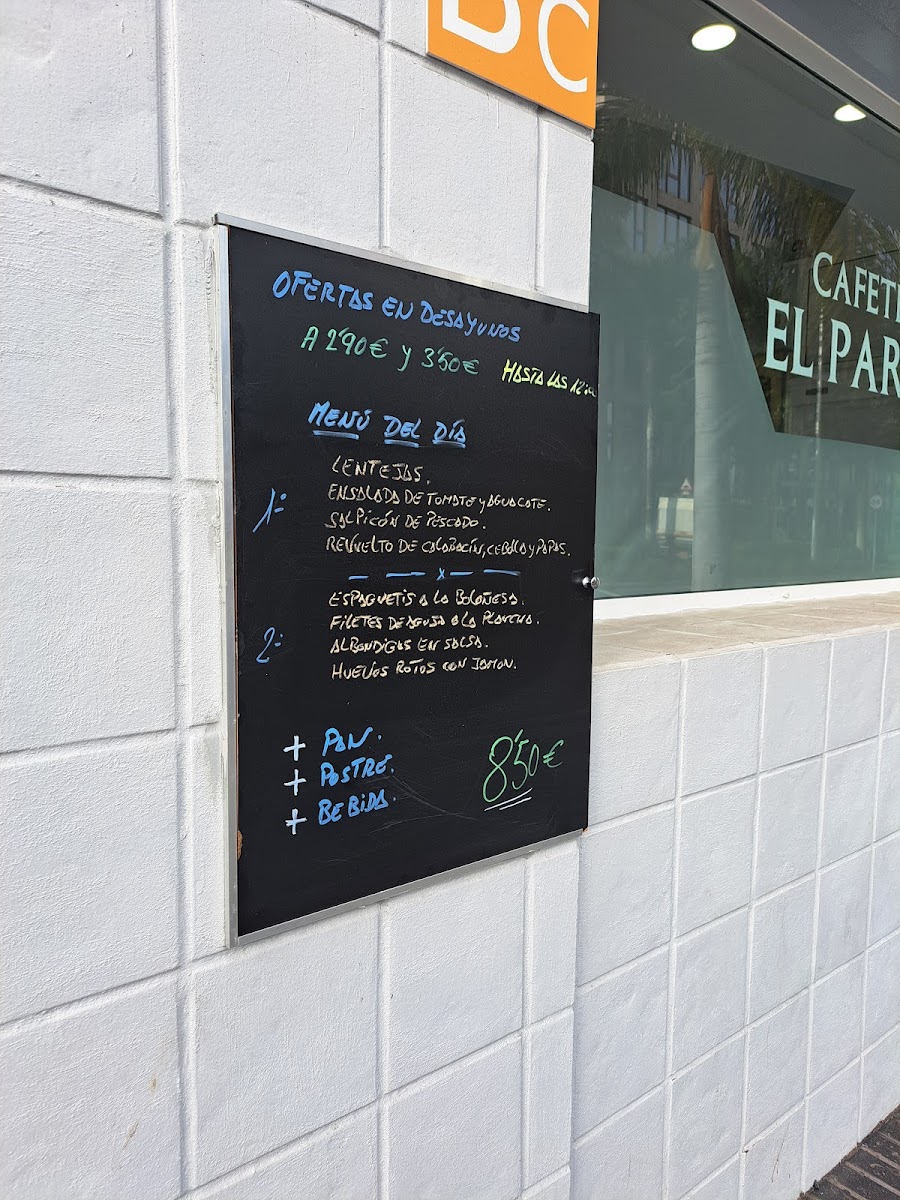 BC
CAFETE
EL PAR
OFERTAS EN DESAYUNOS
A 2'90€ Y 3'50€
HASTA LAS 12:00
MENÚ DEL DÍA
1º
LENTEJAS.
ENSALADA DE TOMATE Y AGUACATE.
SALPICÓN DE PESCADO.
REVUELTO DE CALABACÍN, CEBOLLA Y PAPAS.
x
2º
ESPAGUETIS A LA BOLOÑESA.
FILETES DE AGUJA A LA PLANCHA.
ALBONDIGAS EN SALSA.
HUEVOS ROTOS CON JAMON.
+ PAN.
+ POSTRE.
+ BEBIDA.
8'50€